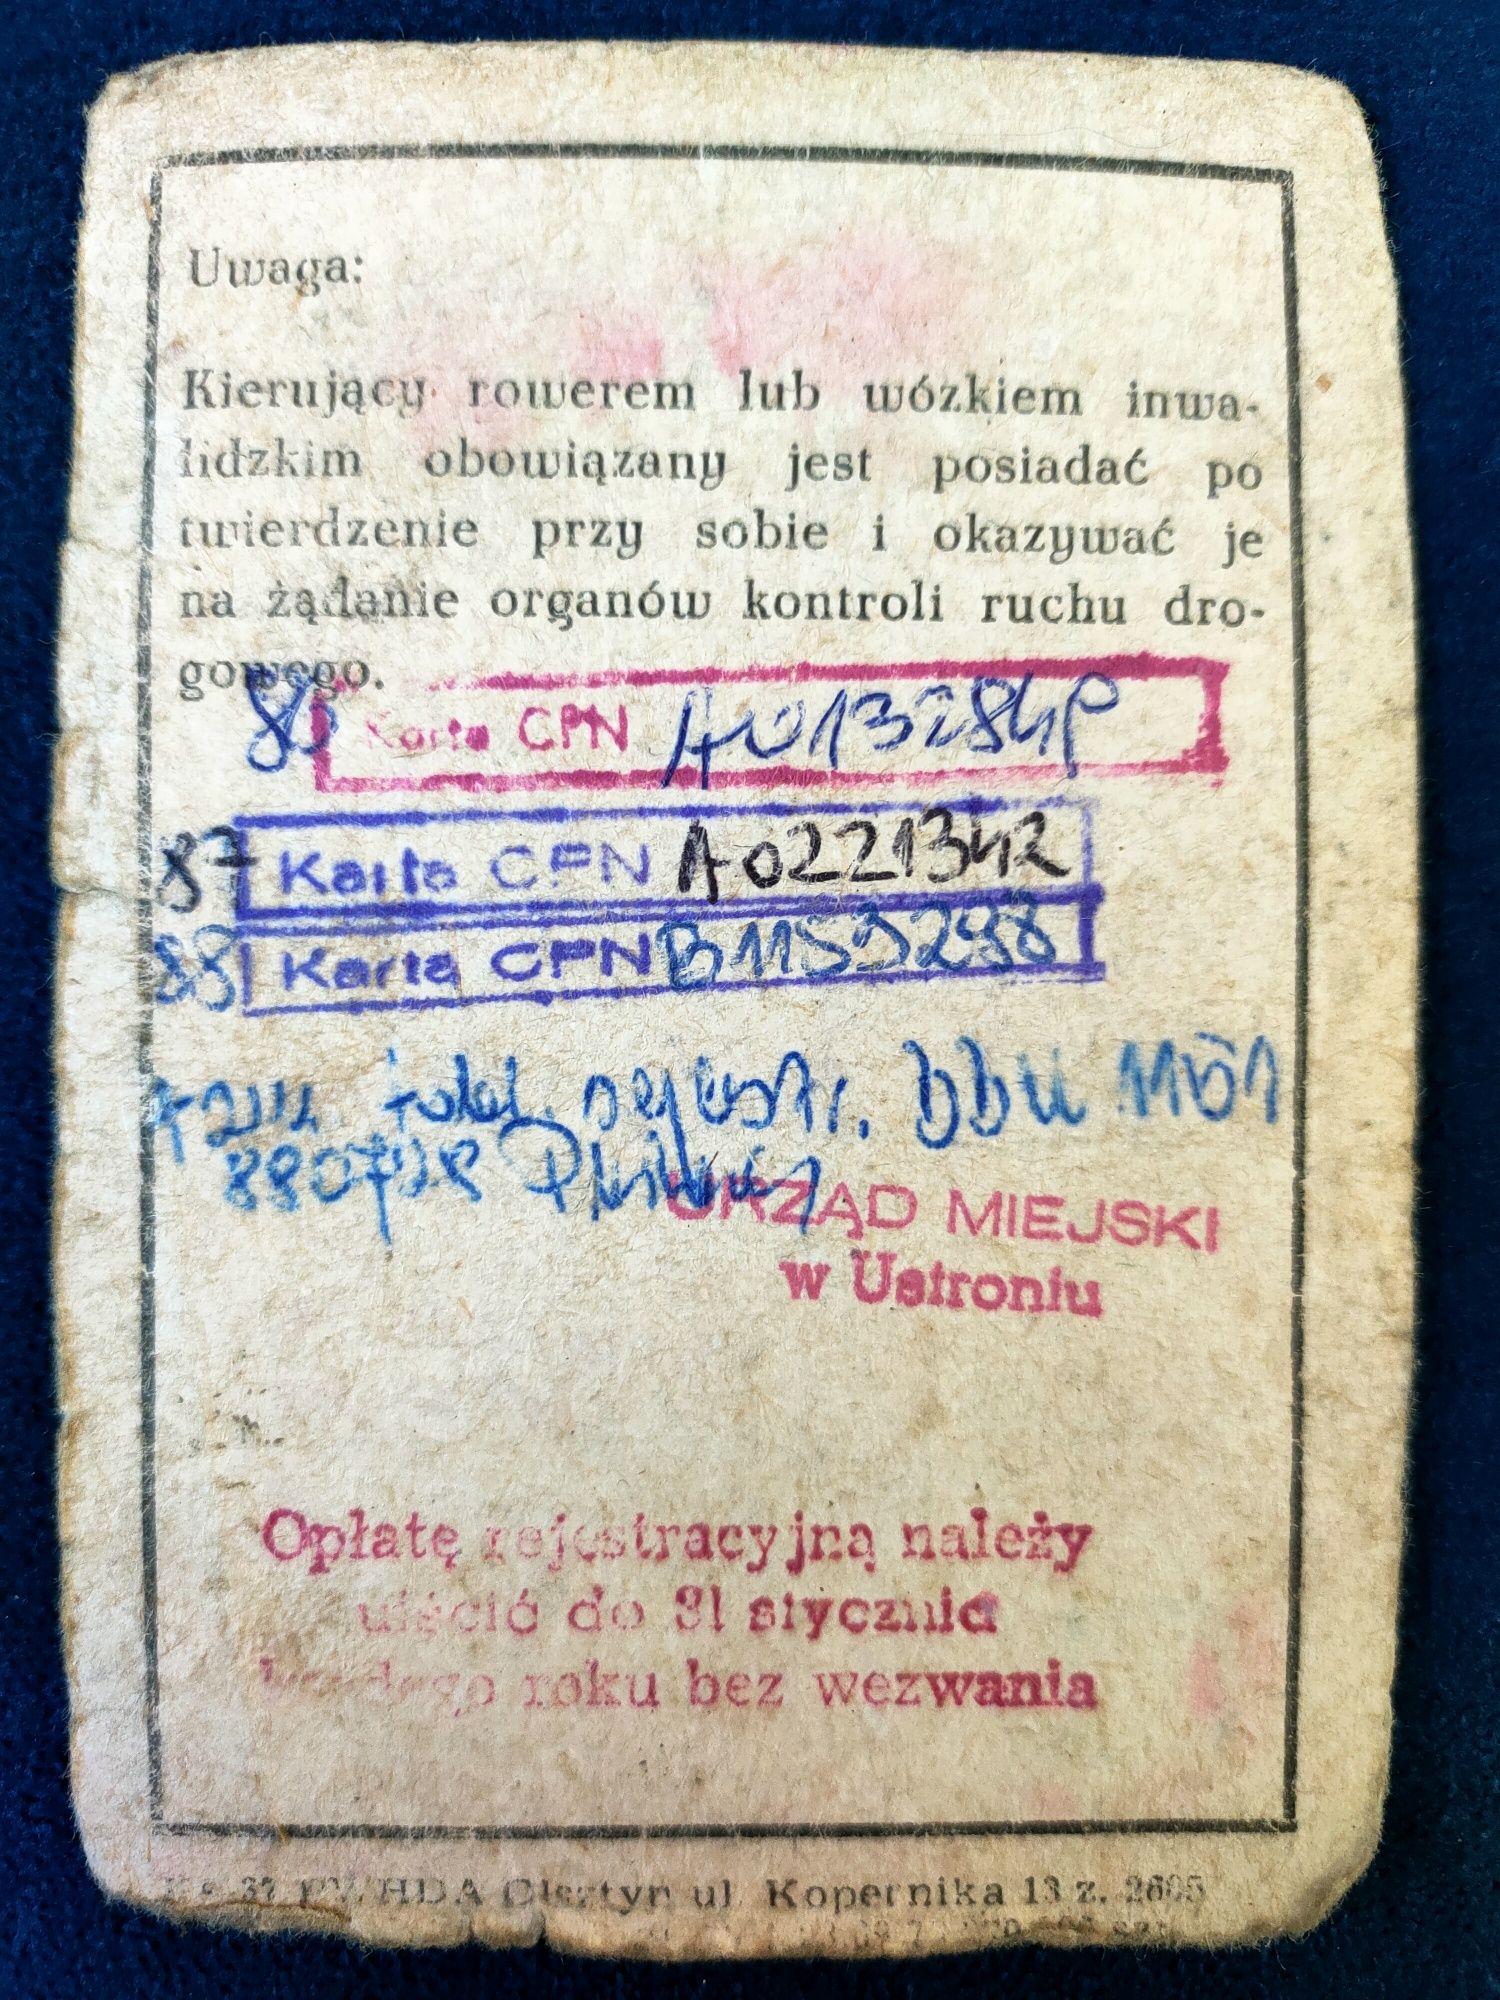 Uwaga:
Kierujący rowerem lub wózkiem inwa-
lidzkim obowiązany jest posiadać po
twierdzenie przy sobie i okazywać je
na żądanie organów kontroli ruchu dro-
gowego.
86 Karta CPN A0132841P
87 Karta CPN A0221342
88 Karta CPN B1153298
rejestr.
URZĄD MIEJSKI
w Ustroniu
Opłatę rejestracyjną należy
uiścić do 31 stycznia
każdego roku bez wezwania
Olsztyn ul. Kopernika 13 z. 2605